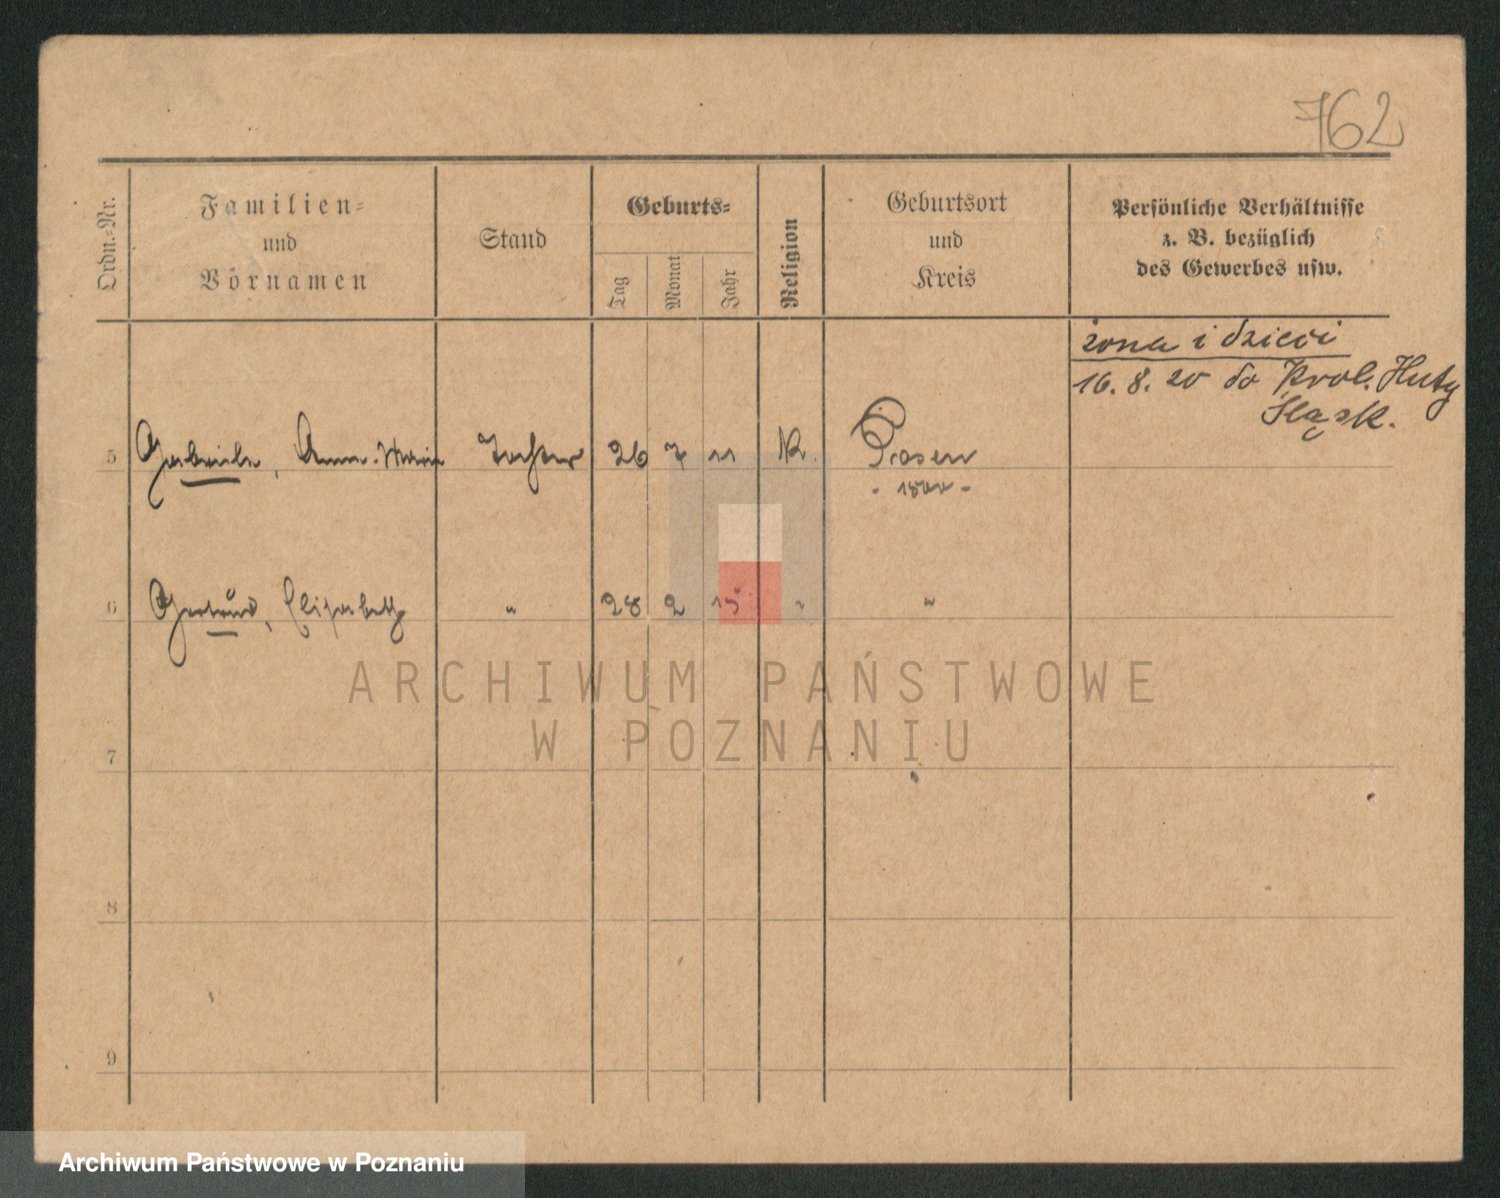 762
Ordn.-Nr.
Familien-
und
Vornamen
Stand
Geburts-
Tag
Monat
Jahr
Religion
Geburtsort
und
Kreis
Persönliche Verhältnisse
z. B. bezüglich
des Gewerbes usw.
żona i dzieci
16. 8. 20 do Król. Huty
Śląsk.
5 Gabriele, Anna-Maria Tochter 26 7 11 K. Posen
6 Gertrud, Elisabeth " 28 2 15 " "
7
8
9
ARCHIWUM PAŃSTWOWE
W POZNANIU
Archiwum Państwowe w Poznaniu